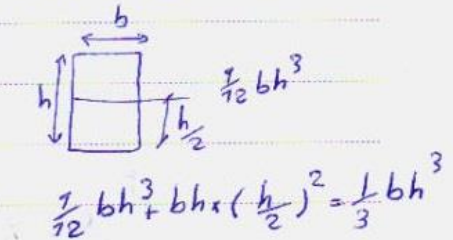 b
h
1/12 bh³
h/2
1/12 bh³ + bh × (h/2)² = 1/3 bh³